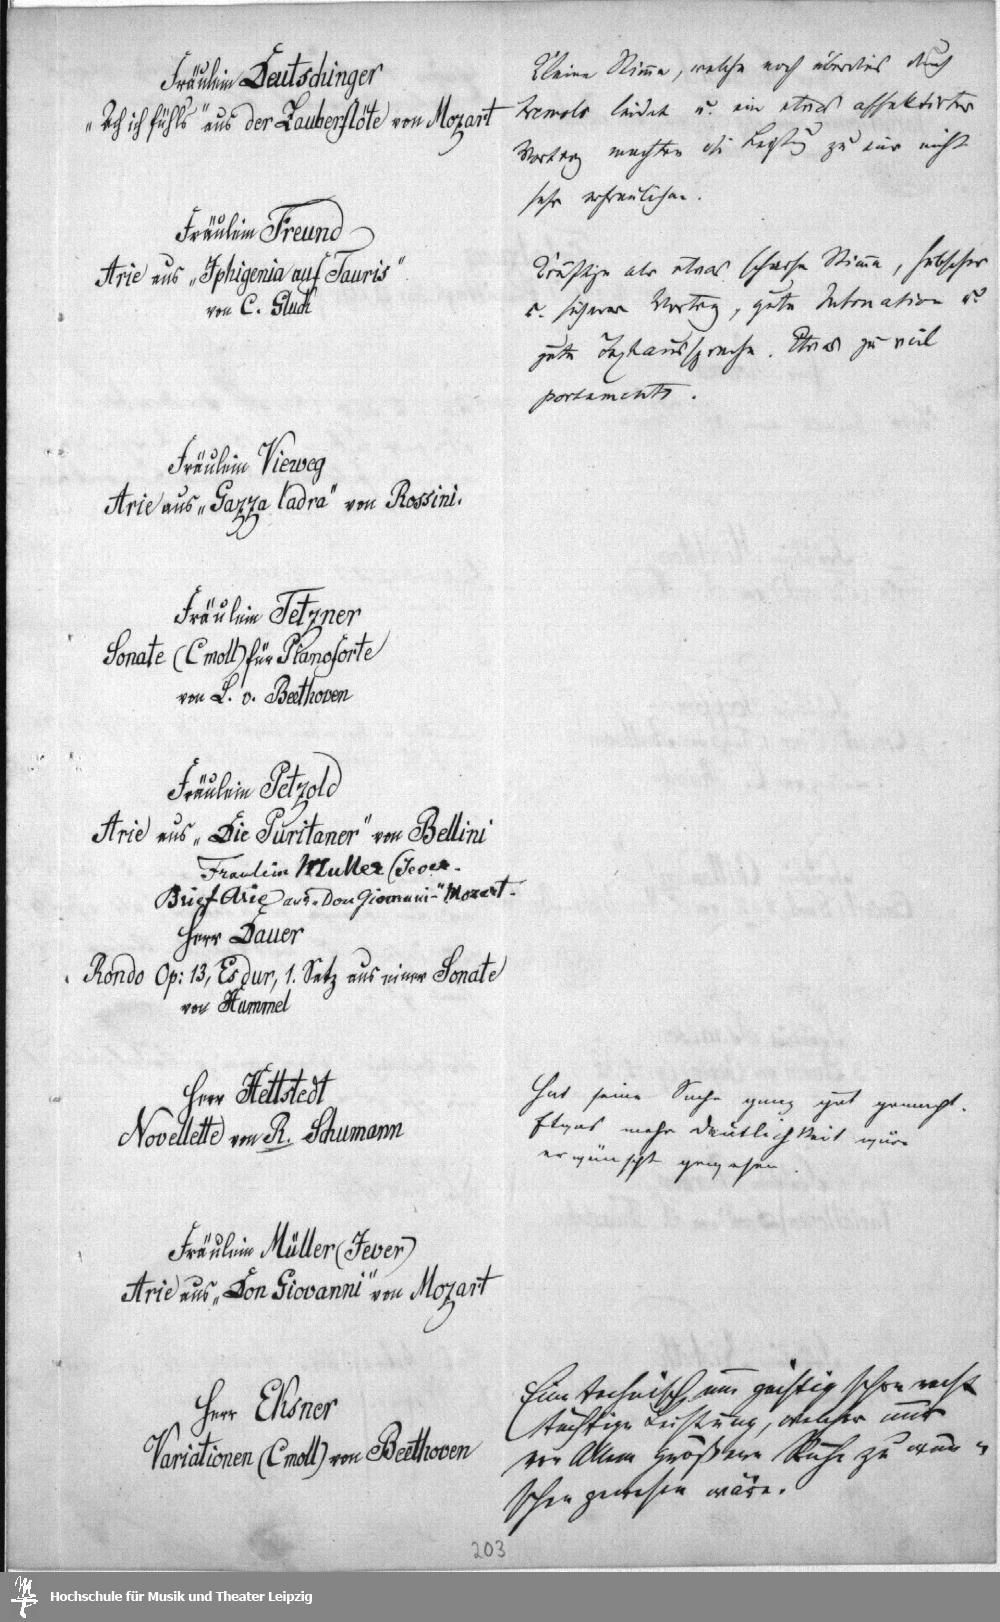 Fräulein Deutschinger
„Ach ich fühls" aus der Zauberflöte von Mozart
Kleine Stimme, welche noch überdies durch
tremolo leidet u. ein etwas affektirter
Vortrag machten die Leistung zu einer nicht
sehr erfreulichen.
Fräulein Freund
Arie aus „Iphigenia auf Tauris"
von C. Gluck
Kräftige aber etwas scharfe Stimme, hübscher
u. sicherer Vortrag, gute Intonation u.
gute Textaussprache. Etwas zu viel
portamento.
Fräulein Vieweg
Arie aus „Gazza ladra" von Rossini.
Fräulein Tetzner
Sonate (Cmoll) für Pianoforte
von L. v. Beethoven
Fräulein Petzold
Arie aus „Die Puritaner" von Bellini
Fräulein Müller (Jever.
Brief Arie aus „Don Giovanni" Mozart.
Herr Dauer
Rondo Op: 13, Es dur, 1. Satz aus einer Sonate
von Hummel
Herr Hettstedt
Novellette von R. Schumann
Hat seine Sache ganz gut gemacht.
Etwas mehr Deutlichkeit wäre
erwünscht gewesen.
Fräulein Müller (Jever)
Arie aus „Don Giovanni" von Mozart
Herr Eksner
Variationen (Cmoll) von Beethoven
Eine technisch und geistig schon recht
tüchtige Leistung, welcher nur
vor Allem größere Ruhe zu wün-
schen gewesen wäre.
203
Hochschule für Musik und Theater Leipzig